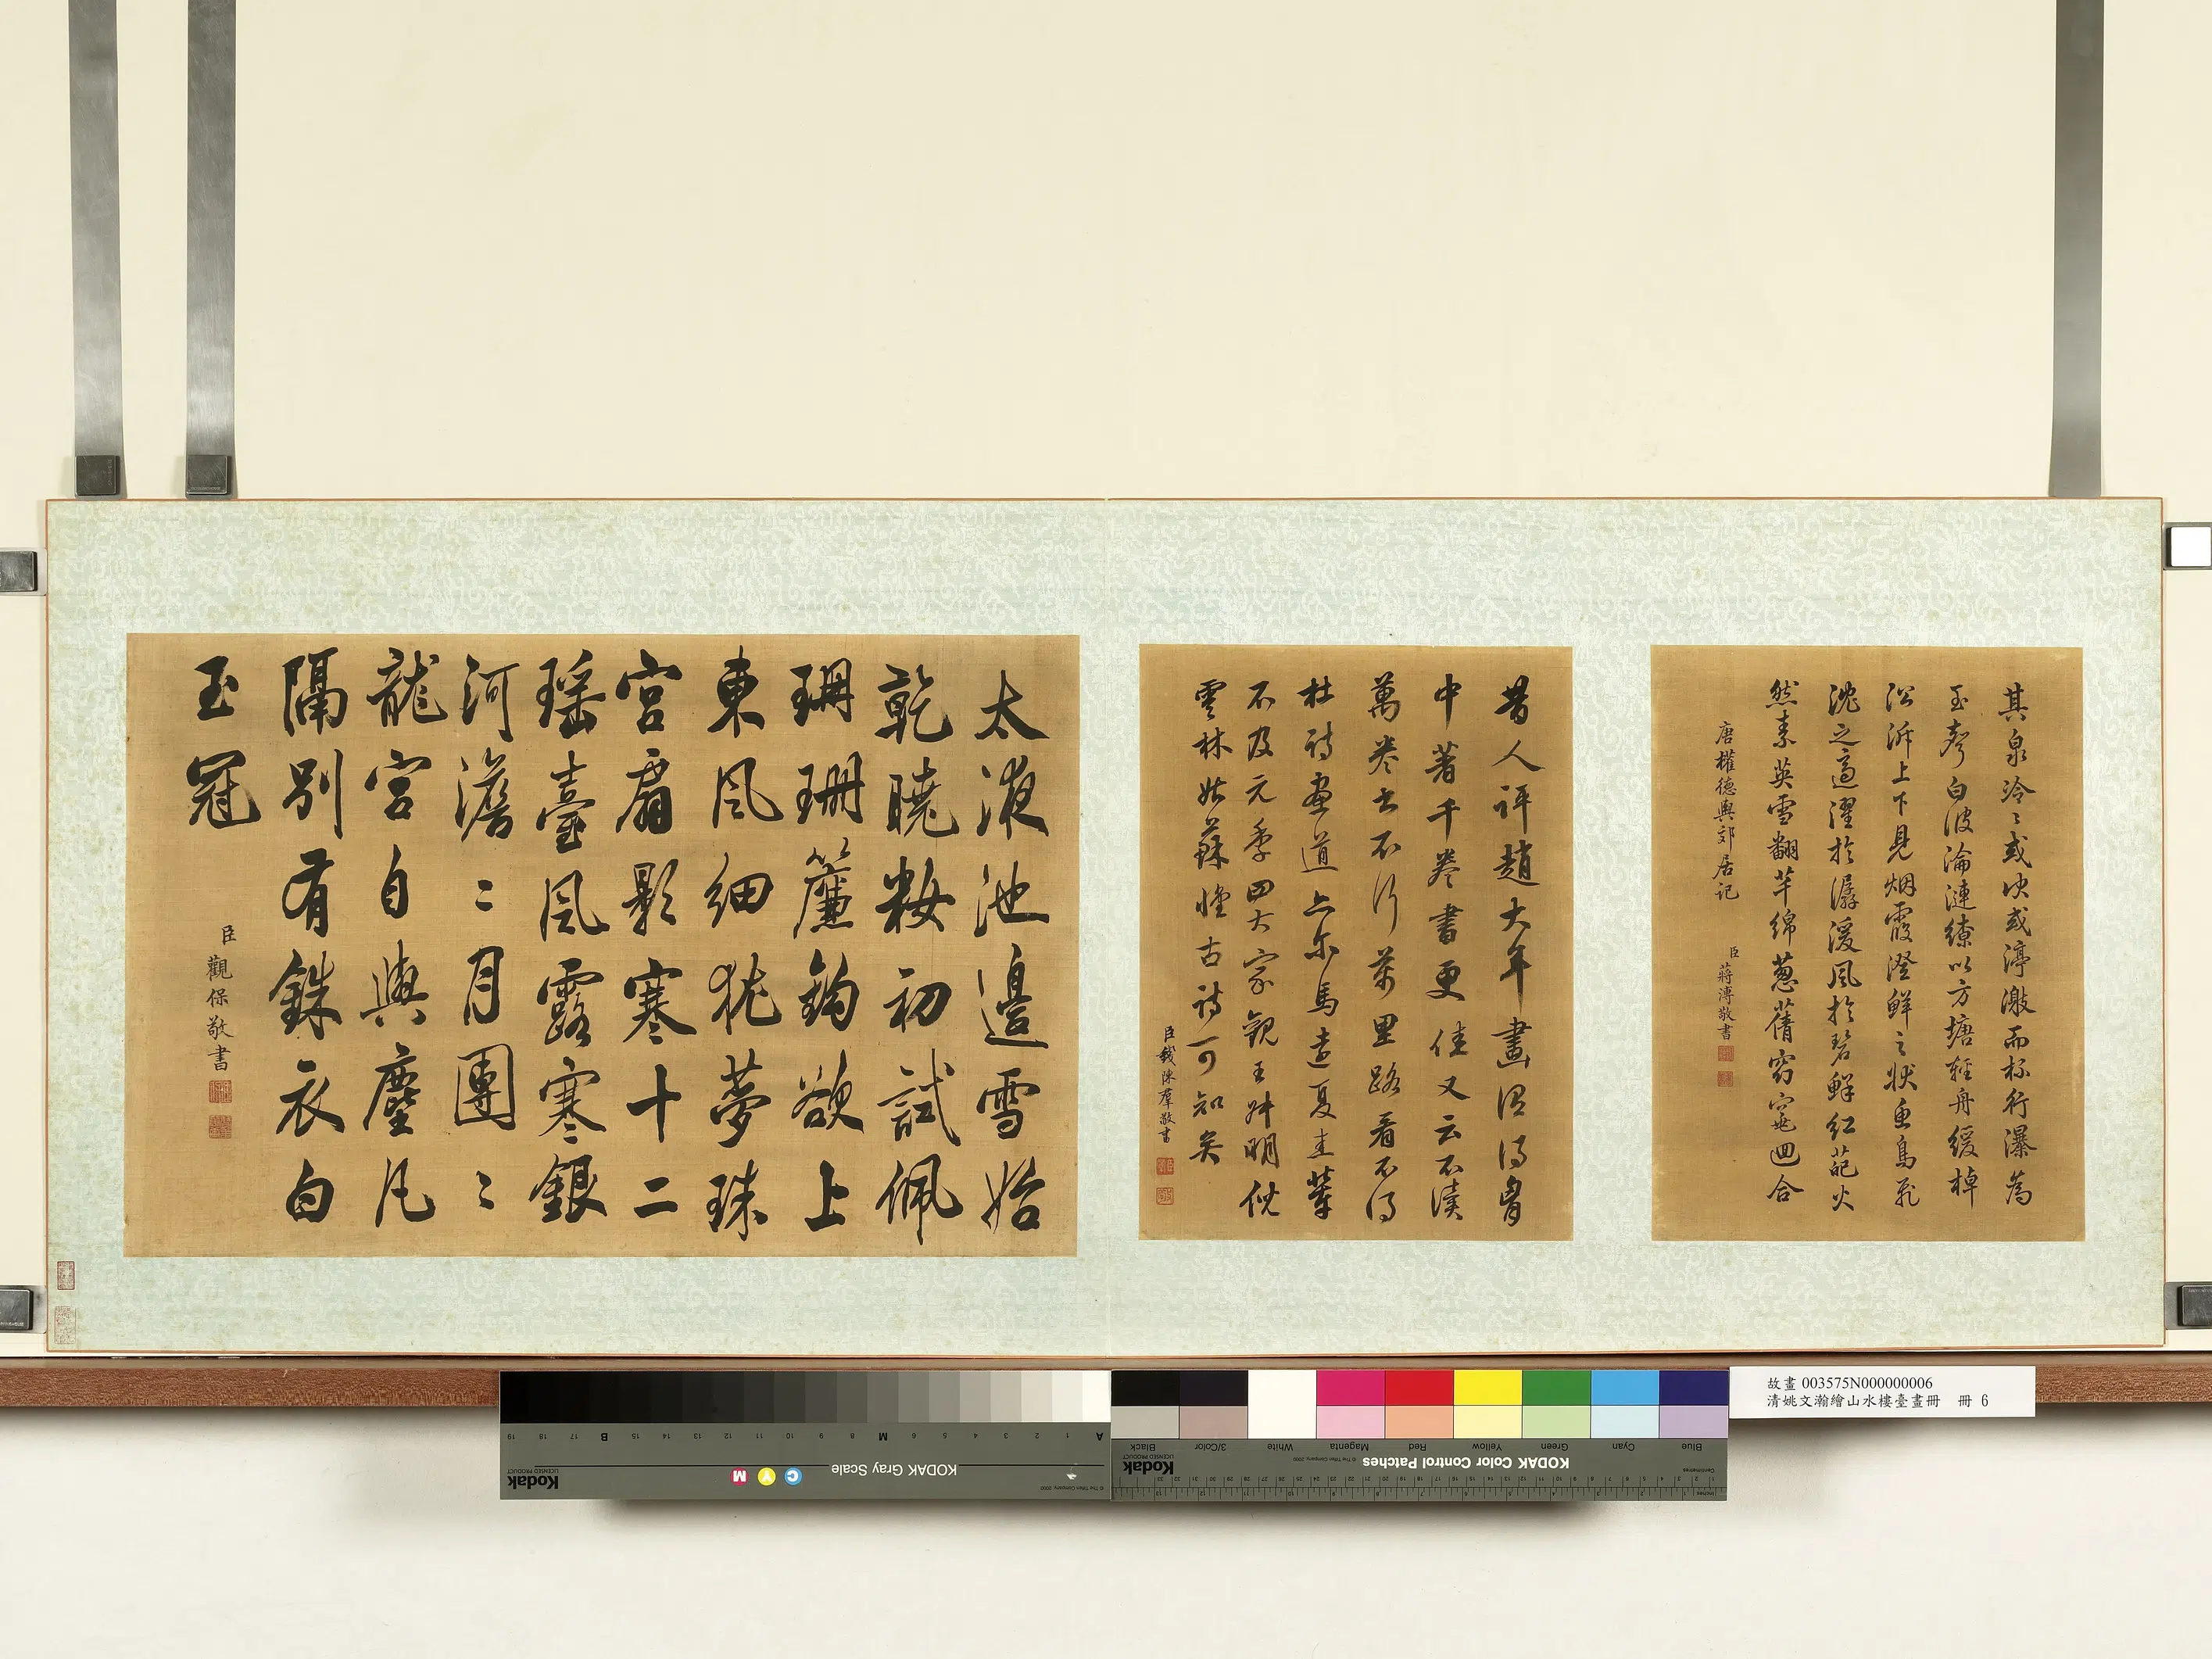 其泉泠〻或决或渟激而杯行瀑為
玉聲白波淪漣繚以方塘輕舟緩棹
沿泝上下見烟霞澄鮮之狀魚鳥飛
沈之適濯於潺湲風於碧鮮紅葩火
然素英雪翻芊綿葱蒨窈窕迴合
唐權德輿郊居記
臣蔣溥敬書
昔人評趙大年畫謂得胷
中著千卷書更佳又云不讀
萬卷書不行萬里路看不得
杜詩畫道亦爾馬遠夏圭輩
不及元季四大家觀王叔明倪
雲林姑蘇懷古詩可知矣
臣錢陳羣敬書
太液池邊雪始
乾曉妝初試佩
珊珊簾鉤欲上
東風細猶夢珠
宮扇影寒十二
瑤臺風露寒銀
河澹〻月團〻
龍宮自與塵凡
隔別有銖衣白
玉冠
臣觀保敬書
故畫 003575N000000006
清姚文瀚繪山水樓臺畫冊 冊 6
KODAK Gray Scale
C Y M
Kodak
LICENSED PRODUCT
A 1 2 3 4 5 6 M 8 9 10 11 12 13 14 15 B 17 18 19
KODAK Color Control Patches
© The Tiffen Company, 2000
Kodak
LICENSED PRODUCT
Blue Cyan Green Yellow Red Magenta White 3/Color Black